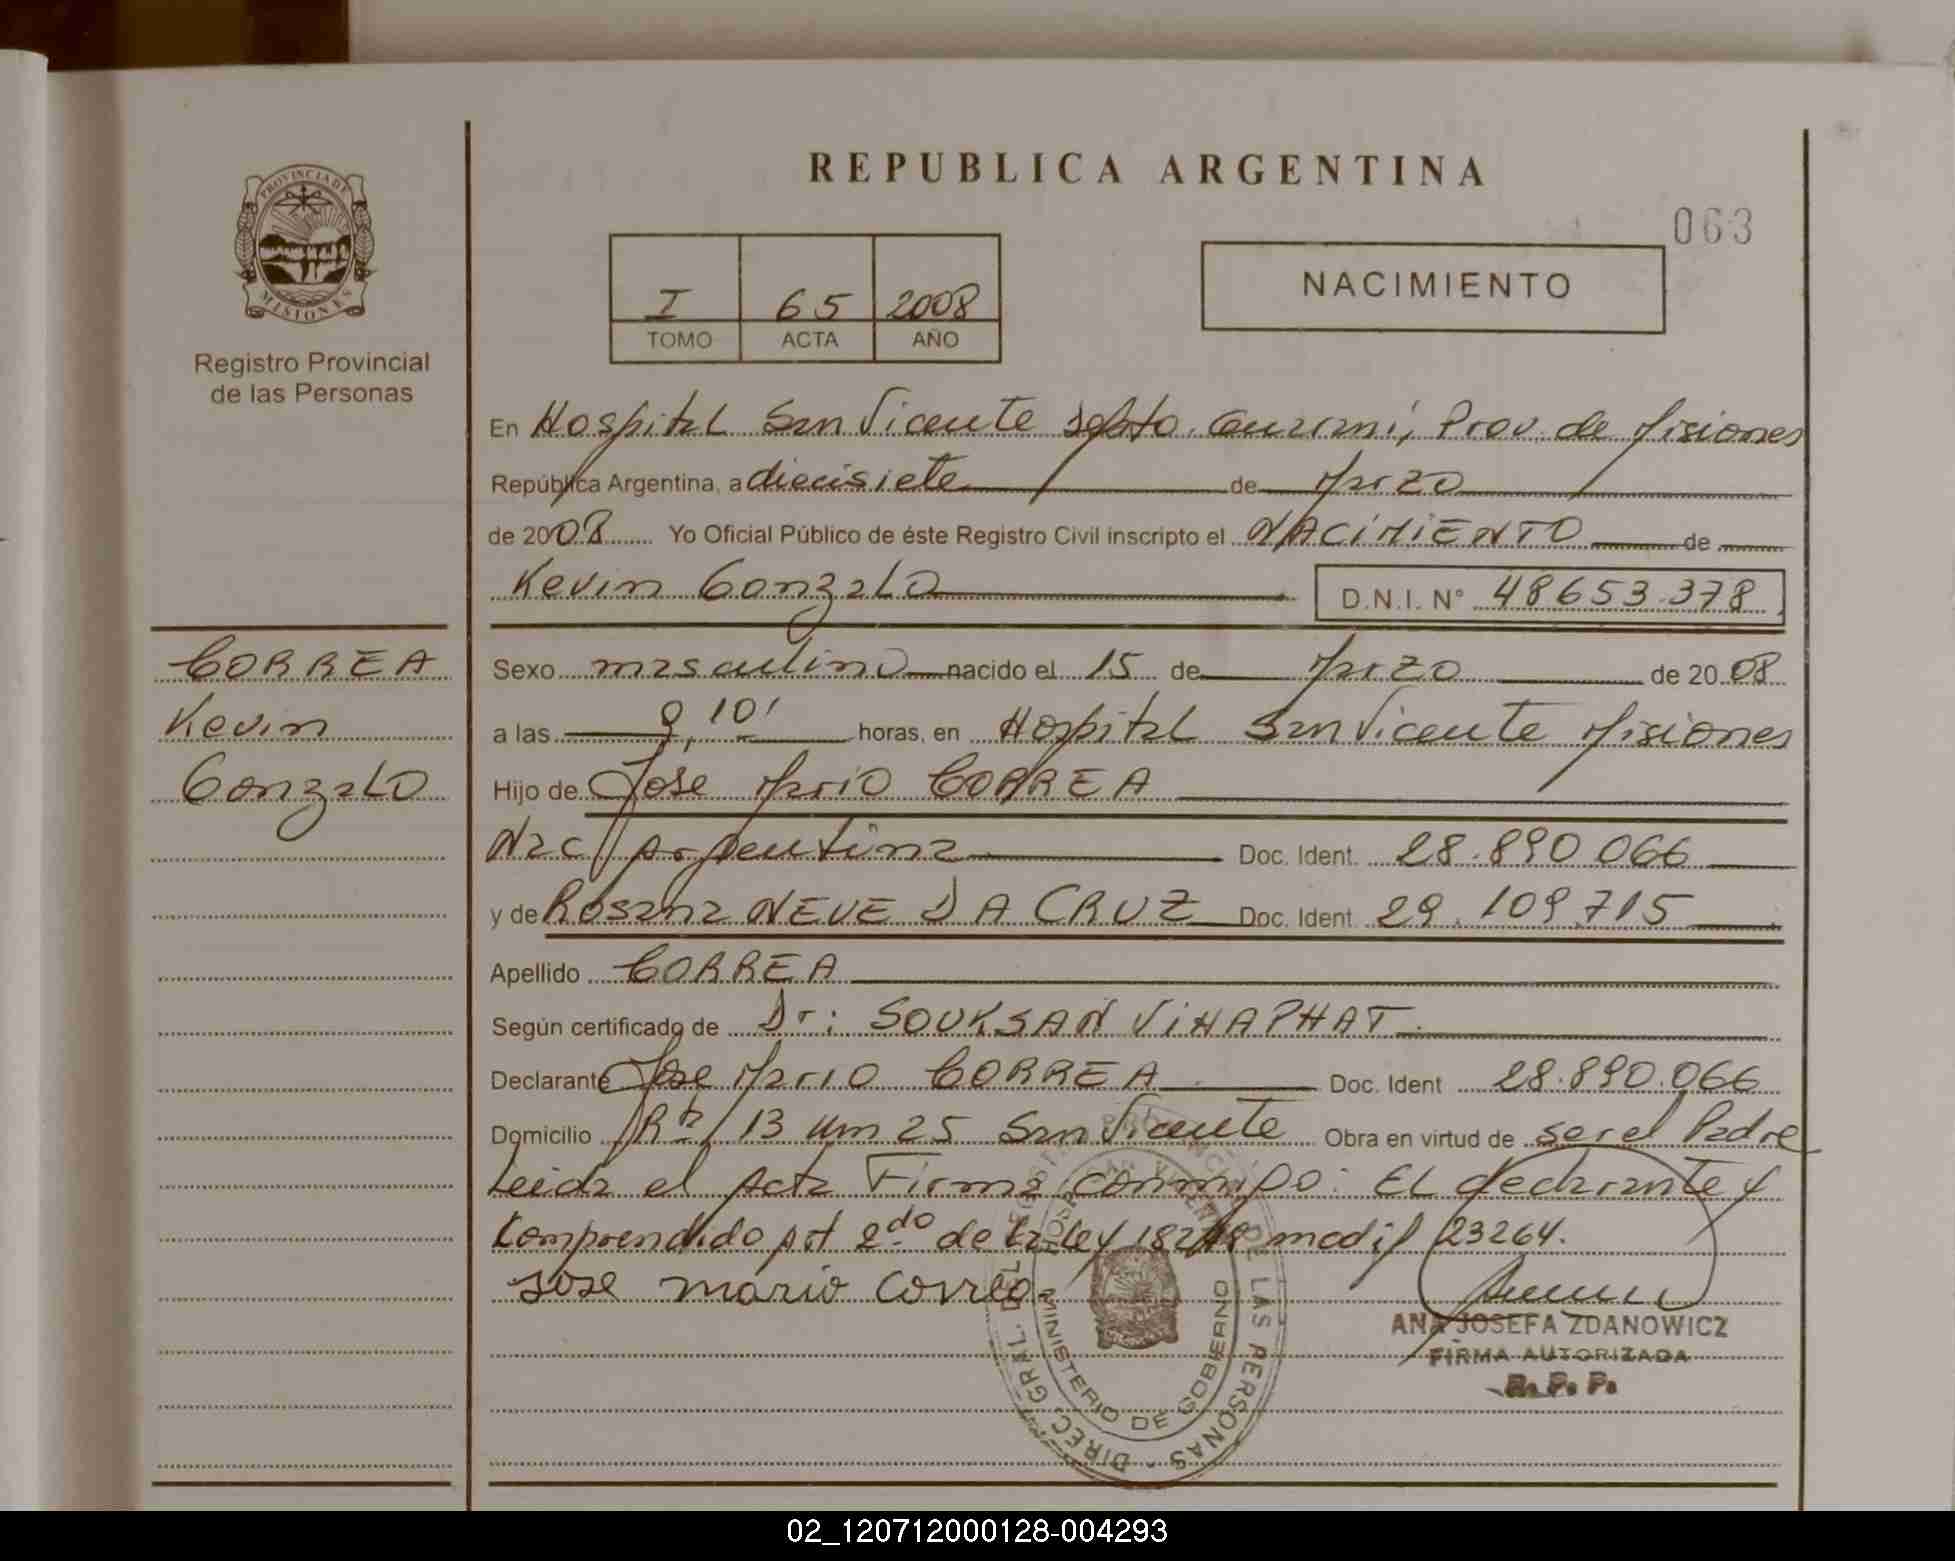 REPUBLICA ARGENTINA
063
PROVINCIA DE
MISIONES
Registro Provincial
de las Personas
I 65 2008
TOMO ACTA AÑO
NACIMIENTO
En Hospital San Vicente Depto. Guarani, Prov. de Misiones
República Argentina, a diecisiete de Marzo
de 2008 Yo Oficial Público de éste Registro Civil inscripto el NACIMIENTO de
Kevin Gonzalo D.N.I. N° 48653.378
CORREA
Kevin
Gonzalo
Sexo masculino nacido el 15 de Marzo de 2008
a las 9,10' horas, en Hospital San Vicente Misiones
Hijo de Jose Mario CORREA
Nac Argentina Doc. Ident. 28.890.066
y de Rosana NEVE DA CRUZ Doc. Ident. 29.109.715
Apellido CORREA
Según certificado de Dr: SOUKSAN VIHAPHAT
Declarante Jose Mario CORREA Doc. Ident 28.890.066
Domicilio Rta 13 Km 25 San Vicente Obra en virtud de ser el Padre
Leida el Acta Firma conmigo: EL declarante y
Comprendido Art 2do de la Ley 18248 modif 23264.
Jose mario correa
DIREC. GRAL. DE LAS PERSONAS
MINISTERIO DE GOBIERNO
ANA JOSEFA ZDANOWICZ
FIRMA AUTORIZADA
R. P. P.
02_120712000128-004293